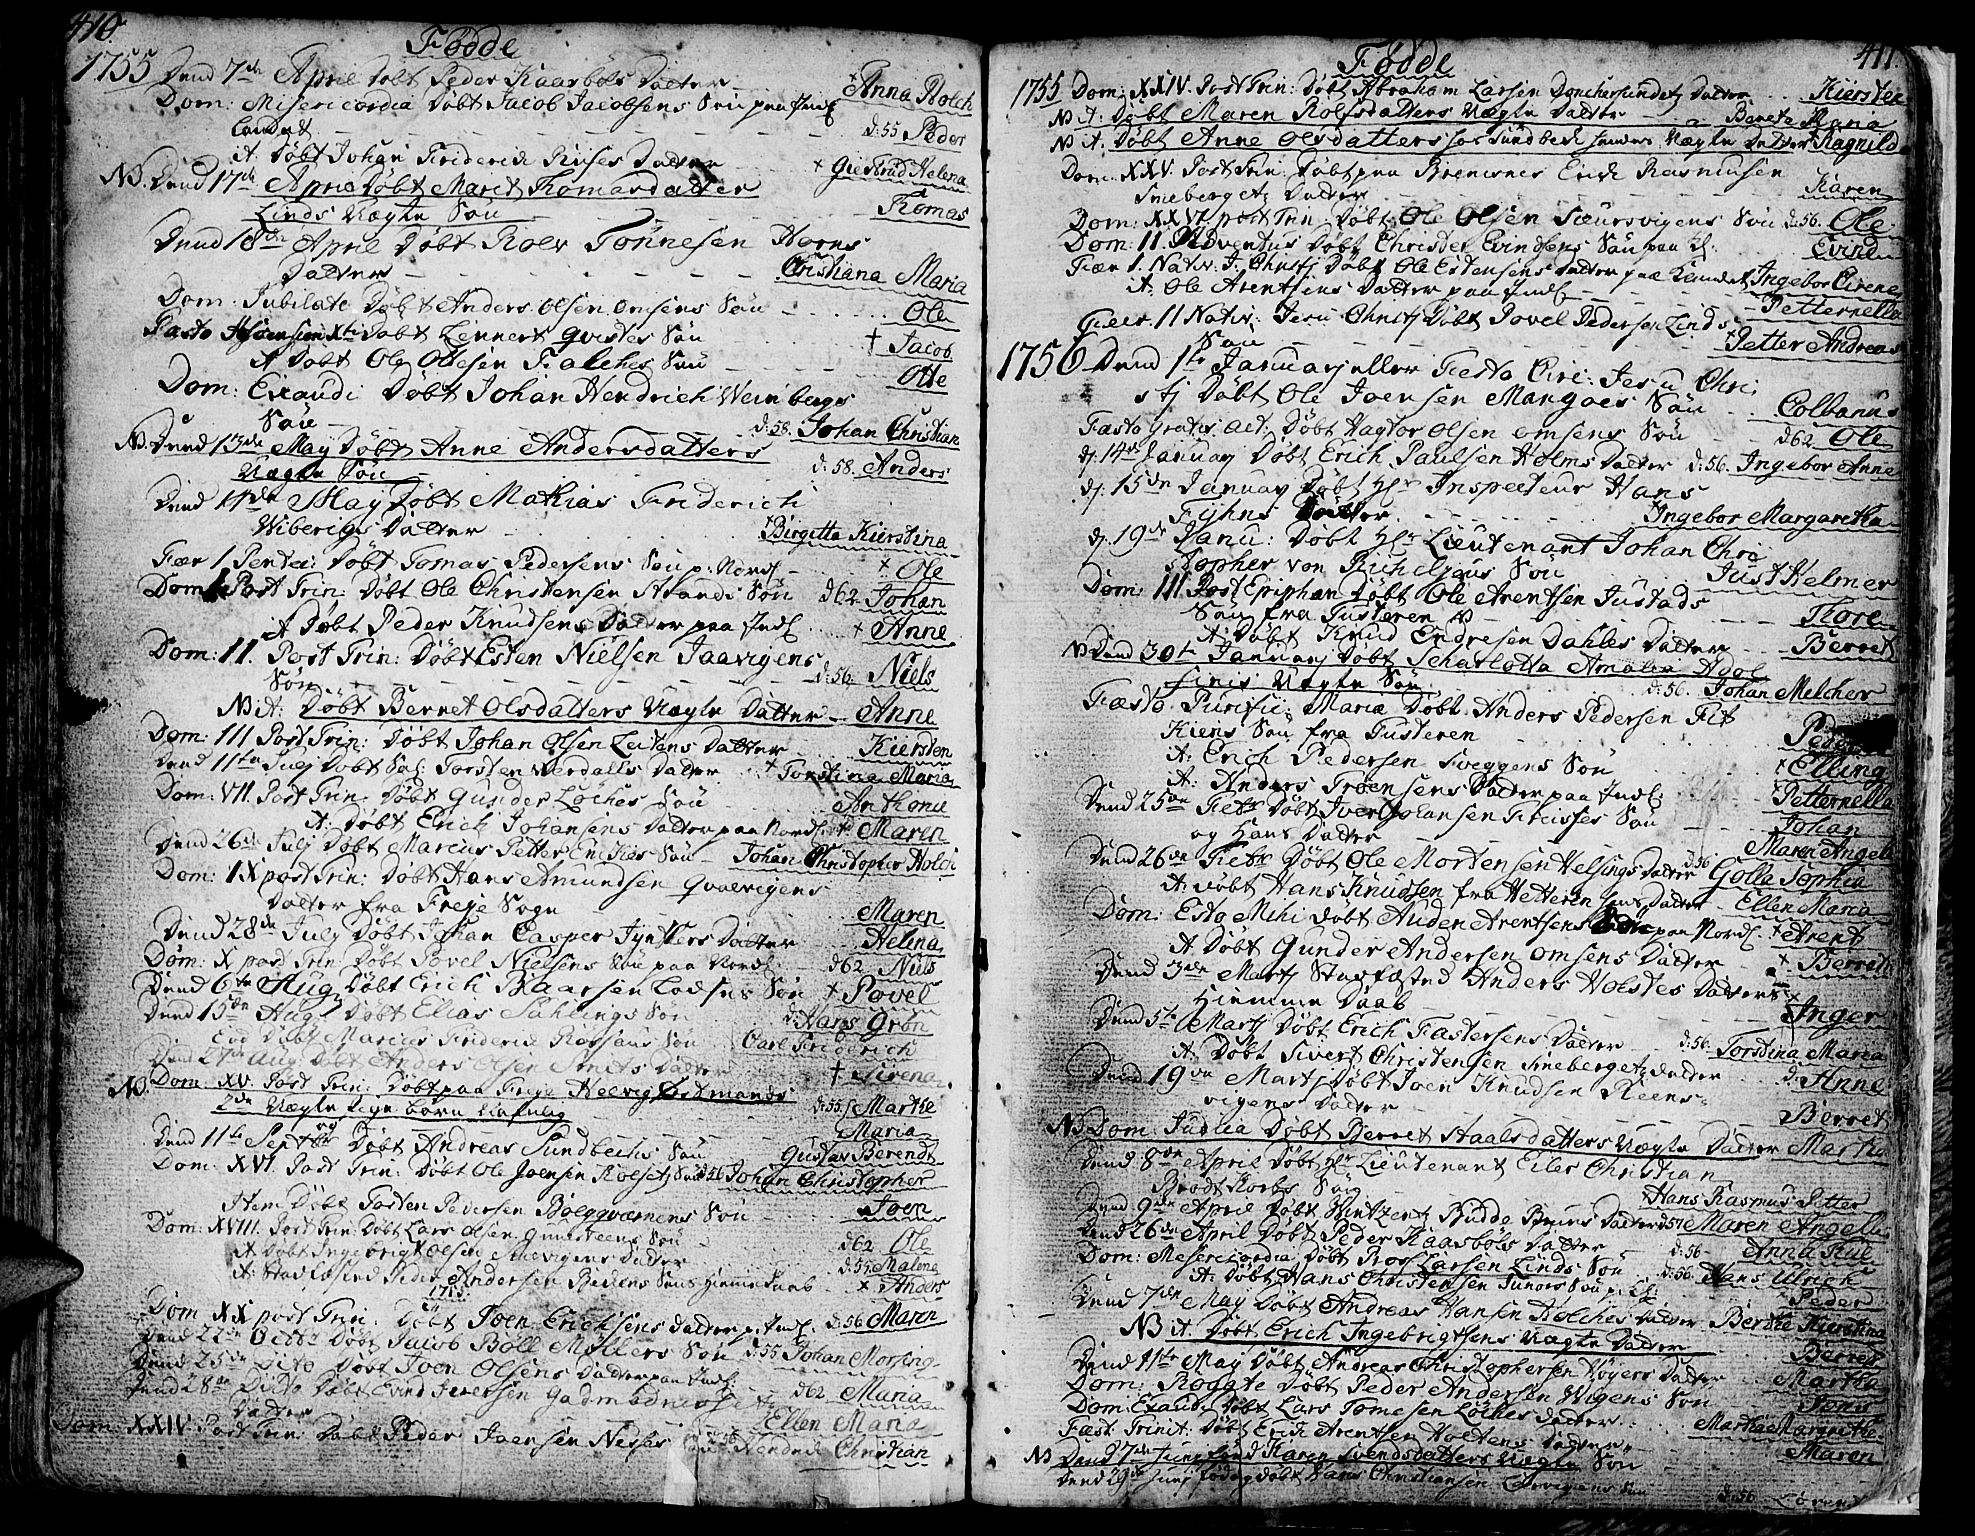 410
Fødde
1755 Dend 7de April Døbt Peder Kaasbøls Datter — + Anna Holch
Dom: Misericordia Døbt Jacob Jacobsens Søn paa Ind
Landet — d:55 Peder
it Døbt Johan Friderich Riises Datter + Giertrud Helena
NB. Dend 17de April Døbt Maret Tomasdatter
Linds Uægte Søn — Tomas
Dend 18de April Døbt Roev Tønnesen Horns
Datter — Christiana Maria
Dom: Jubilate Døbt Anders Olsen Omsens Søn — Ole
Festo Ascensionis Xti Døbt Lennert Qvistes Søn † Jacob
it Døbt Ole Olsen Falches Søn — Otte
Dom: Exaudi Døbt Johan Hendrich Weinbergs
Søn — d:58. Johan Christian
NB. Dend 13de May Døbt Anne Andersdatters
Uægte Søn — d:58. Anders
Dend 14de May Døbt Mathias Friderich
Wibergs Datter — † Birgitta Kierstina
Fær 1 Pentec: Døbt Tomas Pedersens Søn p: Nordl — + Ole
Dom 1 Post Trin: Døbt Ole Christensen Strands Søn d62 Johan
it Døbt Peder Knudsens Datter paa Indl + Anne
Dom: 11. Post Trin: Døbt Esten Nielsen Jaavigens
Søn — d:56. Niels
NB it: Døbt Berret Olsdatters Uægte Datter — Anne
Dom: 111 Post Trin: Døbt Johan Olsen Leitens Datter — Kiersten
Dend 11te July Døbt Sal: Torsten Werdalls Datter † Torstina Maria
Dom: VII. Post Trin: Døbt Gunder Løches Søn — Anthonie
it Døbt Erich Johansens Datter paa Nordl: Maren
Dend 26de July Døbt Marcus Petter Erichs Søn — Johan Christopher Holch
Dom: IX post Trin: Døbt Hans Amundsen Qvalvigens
Datter fra Freje Sogn — Maren
Dend 28de July Døbt Johan Casper Jynters Datter — Helena
Dom: X post Trin: Døbt Povel Nielsens Søn paa Nordl d62 Niels
Dend 6te Aug Døbt Erich Baarsen Lodses Søn + Povel
Dend 15de Aug Døbt Elias Sahlings Søn — d: Hans Grøn
Eod Døbt Marcus Friderich Rossaus Søn Carl Friderich
Dend 27de Aug Døbt Anders Olsen Smits Datter † Sirena
NB. Dom: XV. Post Trin: Døbt paa Freje Helvig Østmands
2de Uægte Tvillingbørn — d:55. Marthe
Maria
Dend 11te Septbr Døbt Andreas Sundbechs Søn Gustav Berendt
Dom: XVI. Post Trin: Døbt Ole Joensen Rolsetz Søn d:56 Johan Christopher
Item Døbt Torsten Pedersen Bolgqværnens Søn — Joen
Dom: XVIII. Post Trin: Døbt Lars Olsen Søn — d62 Ole
it Døbt Ingebrigt Olsen Datter d:55. Malene
it. Stadfæsted Peder Andersen Søns Hiemme Daab — + Anders
Dom XX post Trin: Døbt Joen Erichsens Datter p: Indl: d:56 Maren
Dend 22de Octbr Døbt Jacob Bøll Møllers Søn d:55 Johan Morsing
Dend 25de Dito Døbt Joen Olsens Datter paa Indl d62 Maria
Dend 28de Dito Døbt Evind Iversen
Datter — Ellen Maria
Dom: XXIV. Post Trin: Døbt Peder Joensen Nesses Søn d:56 Hendrich Christian
411
Fødde
1755 Dom: XXIV. Post Trin: Døbt Abraham Larsen Datter Kiersten
NB it. Døbt Maren Rolfsdatters Uægte Datter — Berete Maria
NB it. Døbt Anne Olsdatters hos Sundbech hendes Uægte Datter Ragnild
Dom: XXV. Post Trin: Døbt paa Bremsnes Erich Rasmusen
Sinebergetz Datter — Karen
Dom: XXVI post Trin: Døbt Ole Olsen Søn d:56. Ole
Dom: 11 Adventus Døbt Christen Evindsens Søn paa Evind
Fær 1. Nativ: J. Christj Døbt Ole Estensens Datter paa Landet Ingebor Cirene
it. Ole Arentsens Datter paa Indl — Petternella
Feer. 11 Nativ: Jesu Christj Døbt Povel Pedersen Linds
Søn — + Petter Andreas
1756 Dend 1te Januarj eller Festo Circ: Jesu Chri
stj Døbt Ole Joensen Mangaes Søn — Colbanus
Festo Gratis: act: Døbt Hagtor Olsen Omsens Søn — d62 Ole
d. 14de January Døbt Erich Paulsen Holms Datter d:56. Ingebor Anne
d. 15de January Døbt Hr Inspecteur Hans
Fyhns Datter — Ingebor Margaretha
d. 19de Janu: Døbt Hr Lieutenant Johan Chri
stopher von Richelieus Søn — Just Helmer
Dom: 111 Post Epiphan Døbt Ole Arentsen Justads
Søn fra Tusteren — Tore
it Døbt Knud Endresen Dahles Datter — Berret
NB Dend 30te January Døbt Scharlotta Amalia Adol
Uægte Søn — d:56. Johan Melcher
Festo Purific: Mariæ Døbt Anders Pedersen Fit
Kiens Søn fra Tusteren — Peder
it. Erich Pedersen Foeggens Søn — + Elling
it. Anders Troensens Datter paa Indl: Petternella
Dend 25de Febr Døbt Iver Johansen Freisses Søn — Johan
og Hans Datter — Maren Angell
Dend 26de Febr Døbt Ole Mortensen Helsings Datter d:56 Golla Sophia
it: Døbt Hans Knudsen fra Vetteren hans Datter — Ellen Maria
Dom: Esto Mihi Døbt Auden Arentsens Søn paa Nordl + Arent
it Døbt Gunder Andersen Omsens Datter — + Berret
Dend 3de Martj Stadfæsted Anders Holstes Datters
Hiemme Daab — + Inger
Dend 5te Martj Døbt Erich Fastersens Datter d:56. Torstina Maria
it. Døbt Sivert Christensen Sinebergetz Datter d: Anne
Dend 19de Martj Døbt Joen Knudsen Reens-
vigens Datter — Berret
NB Dom: Judica Døbt Berret Haalsdatters Uægte Datter Martha
Dend 8de April Døbt Hr Lieutenant Eiler Christian
Brodtkorbs Søn — Hans Rasmus Petter
Dend 9de April Døbt Wintzentz Budde Bruns Datter d57 Maren Angell
Dend 26de April Døbt Peder Kaasbøls Datter — d:56. Anna Rul
Dom: Misericordia Døbt Roev Larsen Linds Søn d:56. Hans Ulrich
it: Døbt Hans Christensen Søn Peder
Dend 7de May Døbt Andreas Hansen Holches Datter — Berthe Kierstina
NB it. Døbt Erich Ingebrigtsens Uægte Datter — Berret
Dend 11te May Døbt Andreas Christophersen Høgers Datter Martha
Dom: Rogate Døbt Peder Andersen Wigens Søn Jonis
Dom: Exaudi Døbt Lars Tomesen Løches Datter Martha Margrethe
Fæst. Trinit: Døbt Erich Arentsen Holtens Datter — Maren
NB Dend 17de Junj Karen Svendsdatters Uægte Søn
Dend 29de Junj Døbt Hans Christiansen Søn d:56 Lorentz